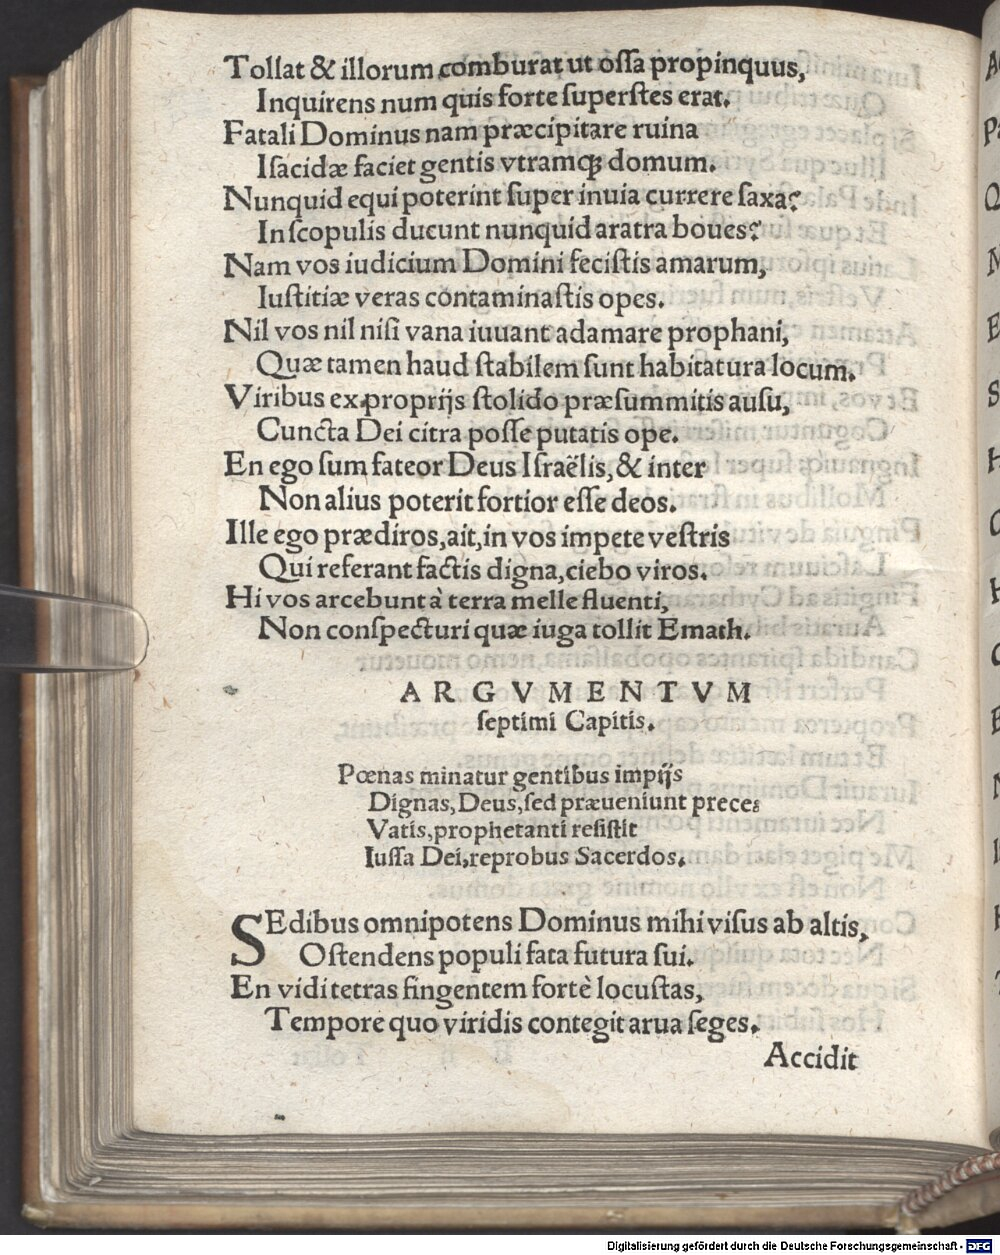 Tollat & illorum comburat ut ossa propinquus,
Inquirens num quis forte superstes erat.
Fatali Dominus nam præcipitare ruina
Isacidæ faciet gentis vtramqꝫ domum.
Nunquid equi poterint super inuia currere saxa?
In scopulis ducunt nunquid aratra boues?
Nam vos iudicium Domini fecistis amarum,
Iustitiæ veras contaminastis opes.
Nil vos nil nisi vana iuuant adamare prophani,
Quæ tamen haud stabilem sunt habitatura locum.
Viribus ex proprijs stolido præsummitis ausu,
Cuncta Dei citra posse putatis ope.
En ego sum fateor Deus Israëlis, & inter
Non alius poterit fortior esse deos.
Ille ego prædiros, ait, in vos impete vestris
Qui referant factis digna, ciebo viros.
Hi vos arcebunt à terra melle fluenti,
Non conspecturi quæ iuga tollit Emath.
ARGVMENTVM
septimi Capitis.
Pœnas minatur gentibus impijs
Dignas, Deus, sed præueniunt preces
Vatis, prophetanti resistit
Iussa Dei, reprobus Sacerdos.
SEdibus omnipotens Dominus mihi visus ab altis,
Ostendens populi fata futura sui.
En vidi tetras fingentem fortè locustas,
Tempore quo viridis contegit arua seges.
Accidit
Digitalisierung gefördert durch die Deutsche Forschungsgemeinschaft - DFG